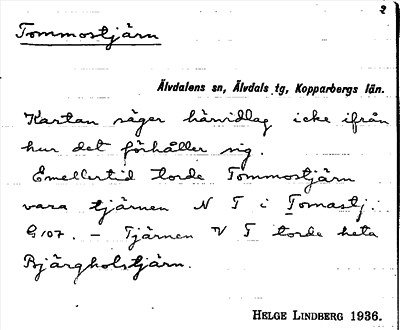 2
Tommostjärn
Älvdalens sn, Älvdals tg, Kopparbergs län.
Kartan säger härvidlag icke ifrån
hur det förhåller sig.
Emellertid torde Tommostjärn
vara tjärnen N T i Tomastj.
G107. – Tjärnen V T torde heta
Bjärgholstjärn.
HELGE LINDBERG 1936.